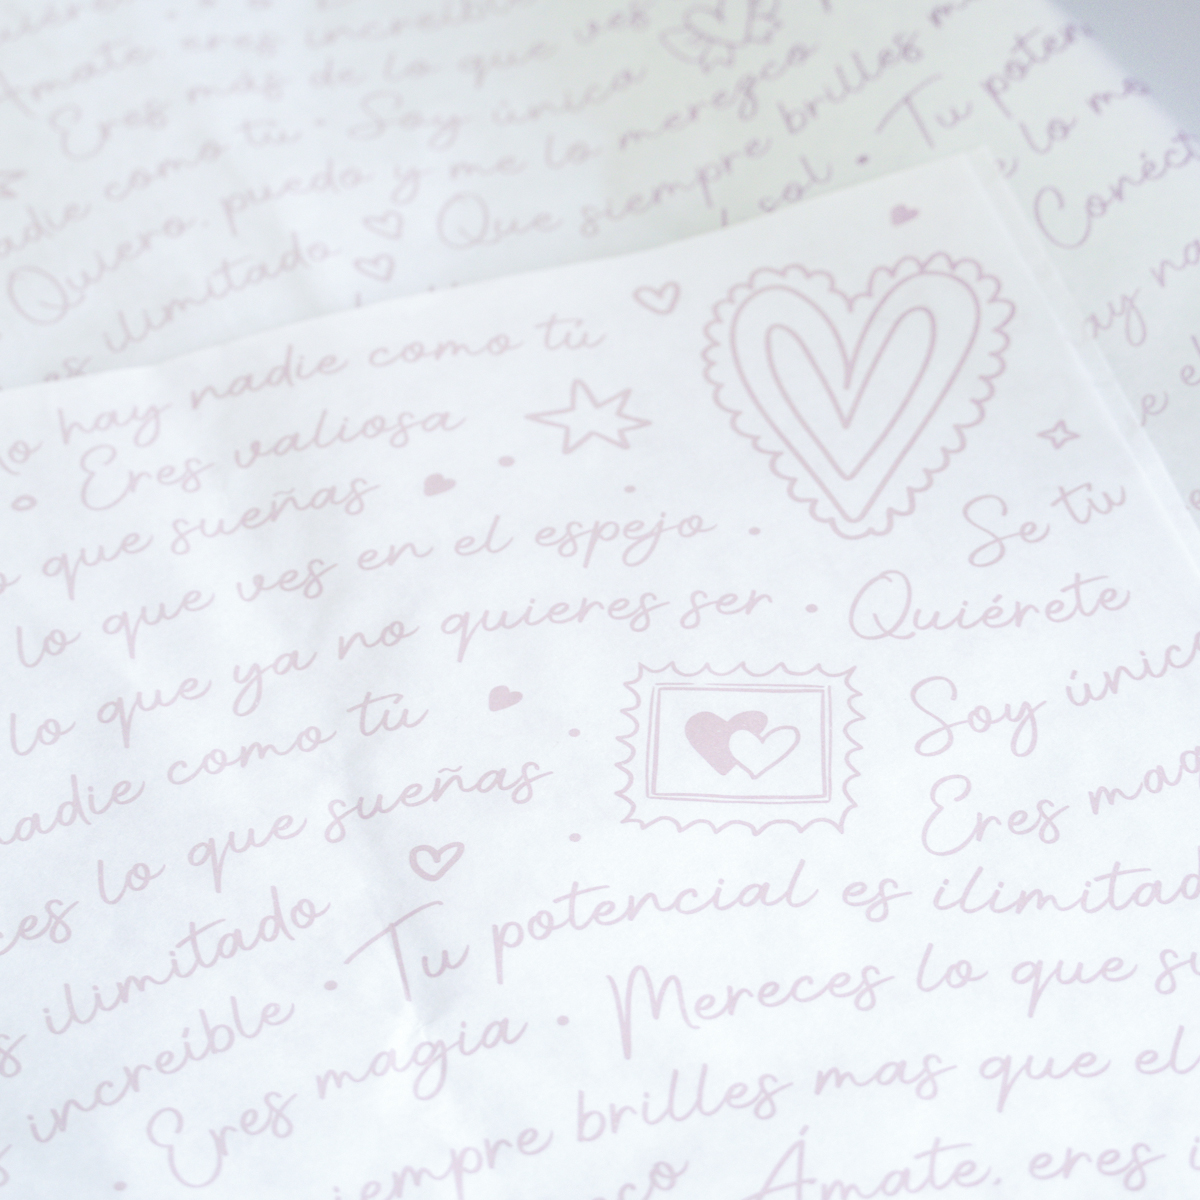 Ámate eres increíble
Eres más de lo que ves
nadie como tú · Soy única
Quiero, puedo y me lo merezco
es ilimitado Que siempre brilles
sol · Tu poten
lo me
Conéct
hay na
e el
No hay nadie como tú
Eres valiosa
que sueñas
lo que ves en el espejo · Se tu
lo que ya no quieres ser · Quiérete
nadie como tú Soy única
ces lo que sueñas Eres mag
s ilimitado · Tu potencial es ilimitad
s increíble
· Eres magia · Mereces lo que su
iempre brilles mas que el
co Ámate, eres i